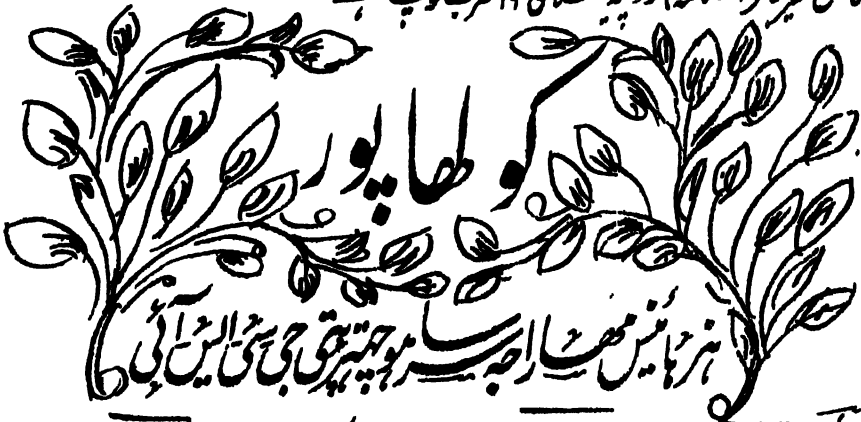 کولھاپور
ہز ہائنس مہاراجہ سر ساہو چھترپتی جی سی ایس آئی